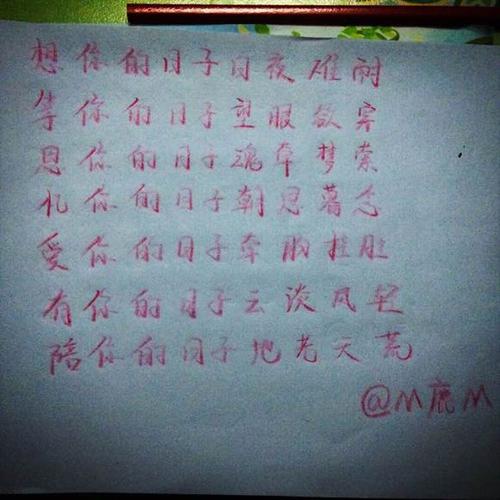 想你的日子日夜难耐
等你的日子望眼欲穿
思你的日子魂牵梦萦
忆你的日子朝思暮念
爱你的日子牵肠挂肚
有你的日子云淡风轻
陪你的日子地老天荒
@M鹿M